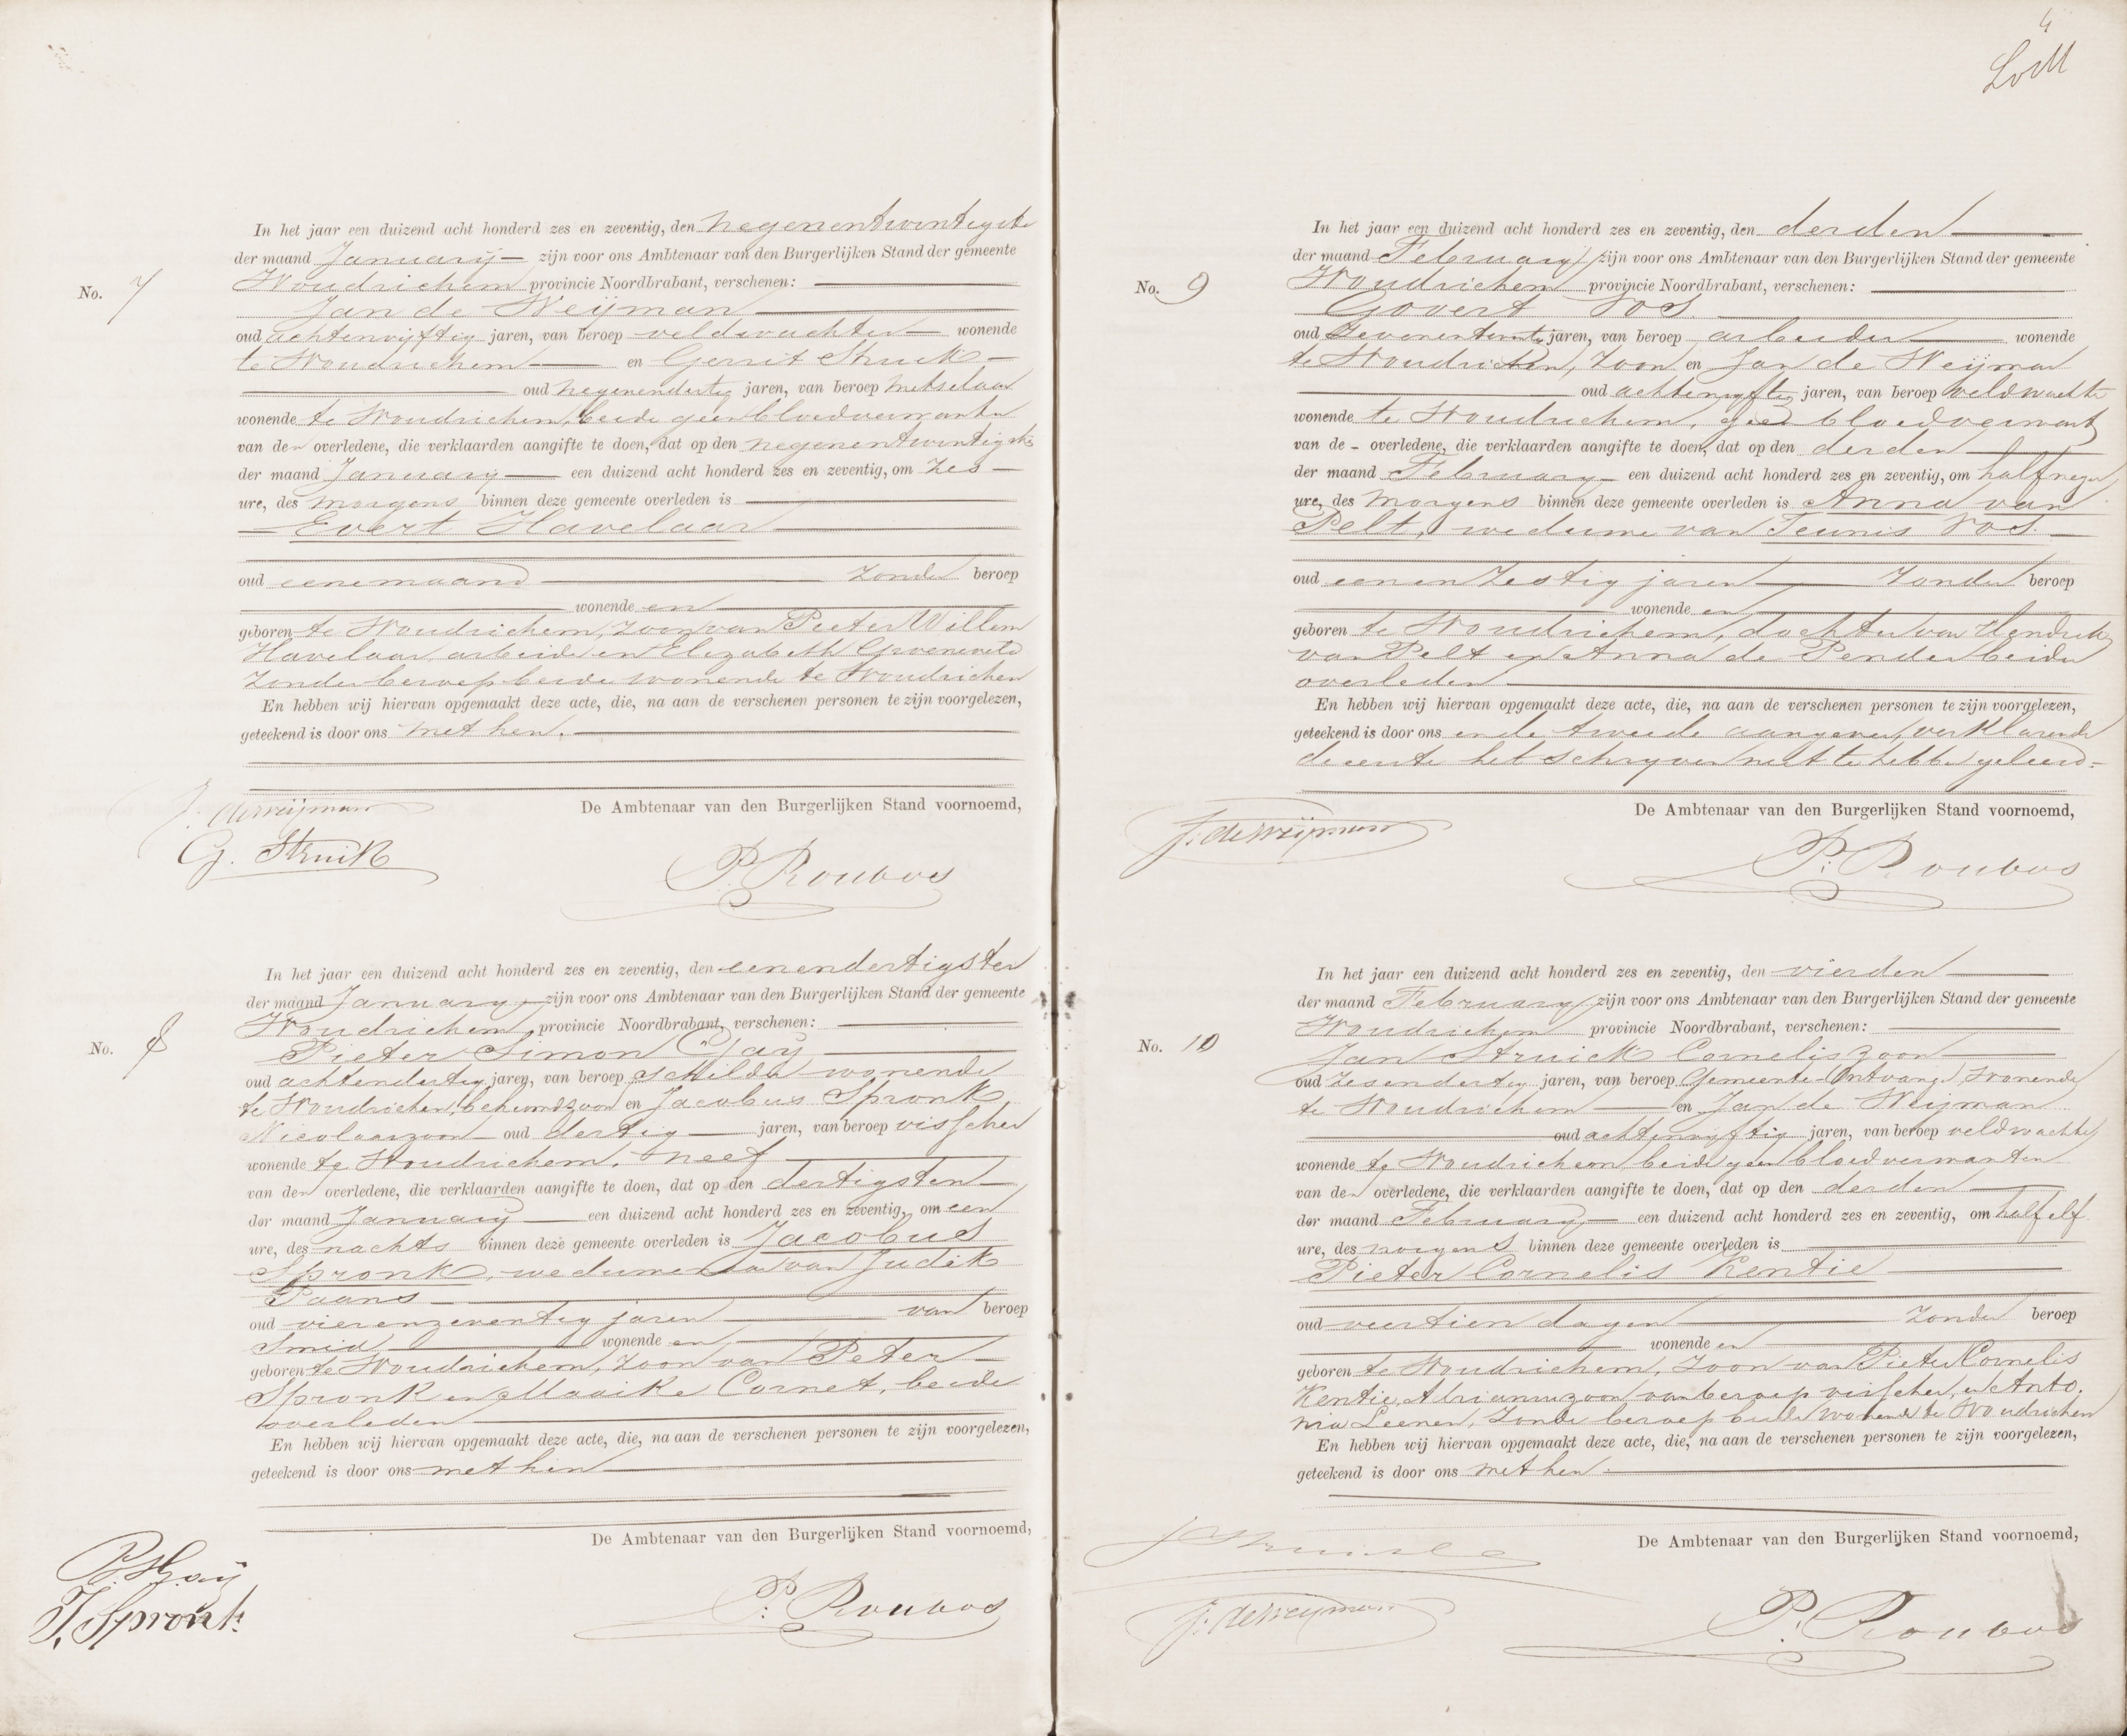 In het jaar een duizend acht honderd zes en zeventig, den negenentwintigste
der maand January zijn voor ons Ambtenaar van den Burgerlijken Stand der gemeente
Woudrichem provincie Noordbrabant, verschenen:
No. 7
Jan de Weijman
oud achtenvijftig jaren, van beroep veldwachter wonende
te Woudrichem en Gerrit Struik
oud negenendertig jaren, van beroep metselaar
wonende te Woudrichem, beide geen bloedverwanten
van den overledene, die verklaarden aangifte te doen, dat op den negenentwintigste
der maand January een duizend acht honderd zes en zeventig, om zes
ure, des morgens binnen deze gemeente overleden is
Evert Havelaar
oud eene maand zonder beroep
wonende en
geboren te Woudrichem, zoon van Pieter Willem
Havelaar, arbeider en Elizabeth Groeneveld
zonder beroep beide wonende te Woudrichem
En hebben wij hiervan opgemaakt deze acte, die, na aan de verschenen personen te zijn voorgelezen,
geteekend is door ons met hen.
De Ambtenaar van den Burgerlijken Stand voornoemd,
J. de Weijman
G. Struik
P. Roubos
In het jaar een duizend acht honderd zes en zeventig, den eenendertigsten
der maand January zijn voor ons Ambtenaar van den Burgerlijken Stand der gemeente
Woudrichem provincie Noordbrabant, verschenen:
No. 8
Pieter Simon Gay
oud achtendertig jaren, van beroep schilder wonende
te Woudrichem, behuwdzoon en Jacobus Spronk
Nicolaaszoon oud dertig jaren, van beroep visscher
wonende te Woudrichem, neef
van den overledene, die verklaarden aangifte te doen, dat op den dertigsten
der maand January een duizend acht honderd zes en zeventig, om een
ure, des nachts binnen deze gemeente overleden is Jacobus
Spronk, weduwenaar van Judik
Paans
oud vierenzeventig jaren van beroep
Smid wonende en
geboren te Woudrichem, zoon van Peter
Spronk en Maaike Cornet, beide
overleden
En hebben wij hiervan opgemaakt deze acte, die, na aan de verschenen personen te zijn voorgelezen,
geteekend is door ons met hen
De Ambtenaar van den Burgerlijken Stand voornoemd,
J. Spronk
P. Roubos
4
In het jaar een duizend acht honderd zes en zeventig, den derden
der maand February zijn voor ons Ambtenaar van den Burgerlijken Stand der gemeente
Woudrichem provincie Noordbrabant, verschenen:
No. 9
Govert Vos
oud jaren, van beroep arbeider wonende
te Woudrichem, zoon en Jan de Weijman
oud achtenvijftig jaren, van beroep veldwachter
wonende te Woudrichem, geen bloedverwant
van de - overledene, die verklaarden aangifte te doen, dat op den derden
der maand February een duizend acht honderd zes en zeventig, om half negen
ure, des morgens binnen deze gemeente overleden is Anna van
Pelt, weduwe van Teunis Vos
oud eenenzestig jaren zonder beroep
wonende en
geboren te Woudrichem, dochter van Hendrik
van Pelt en Anna de Pender beide
overleden
En hebben wij hiervan opgemaakt deze acte, die, na aan de verschenen personen te zijn voorgelezen,
geteekend is door ons en de tweede aangever, verklarende
de eerste het schryven niet te hebben geleerd
De Ambtenaar van den Burgerlijken Stand voornoemd,
J. de Weijman
P. Roubos
In het jaar een duizend acht honderd zes en zeventig, den vierden
der maand February zijn voor ons Ambtenaar van den Burgerlijken Stand der gemeente
Woudrichem provincie Noordbrabant, verschenen:
No. 10
Jan Struick Corneliszoon
oud zesendertig jaren, van beroep Gemeente-Ontvanger, wonende
te Woudrichem en Jan de Weijman
oud achtenvijftig jaren, van beroep veldwachter
wonende te Woudrichem beide geen bloedverwanten
van den overledene, die verklaarden aangifte te doen, dat op den derden
der maand February een duizend acht honderd zes en zeventig, om half elf
ure, des morgens binnen deze gemeente overleden is
Pieter Cornelis Kentie
oud veertien dagen zonder beroep
wonende en
geboren te Woudrichem, zoon van Pieter Cornelis
Kentie, Adrianuszoon, van beroep visscher, en Anto.
nia Leenen, zonder beroep beide wonende te Woudrichem
En hebben wij hiervan opgemaakt deze acte, die, na aan de verschenen personen te zijn voorgelezen,
geteekend is door ons met hen.
De Ambtenaar van den Burgerlijken Stand voornoemd,
J. de Weijman
P. Roubos